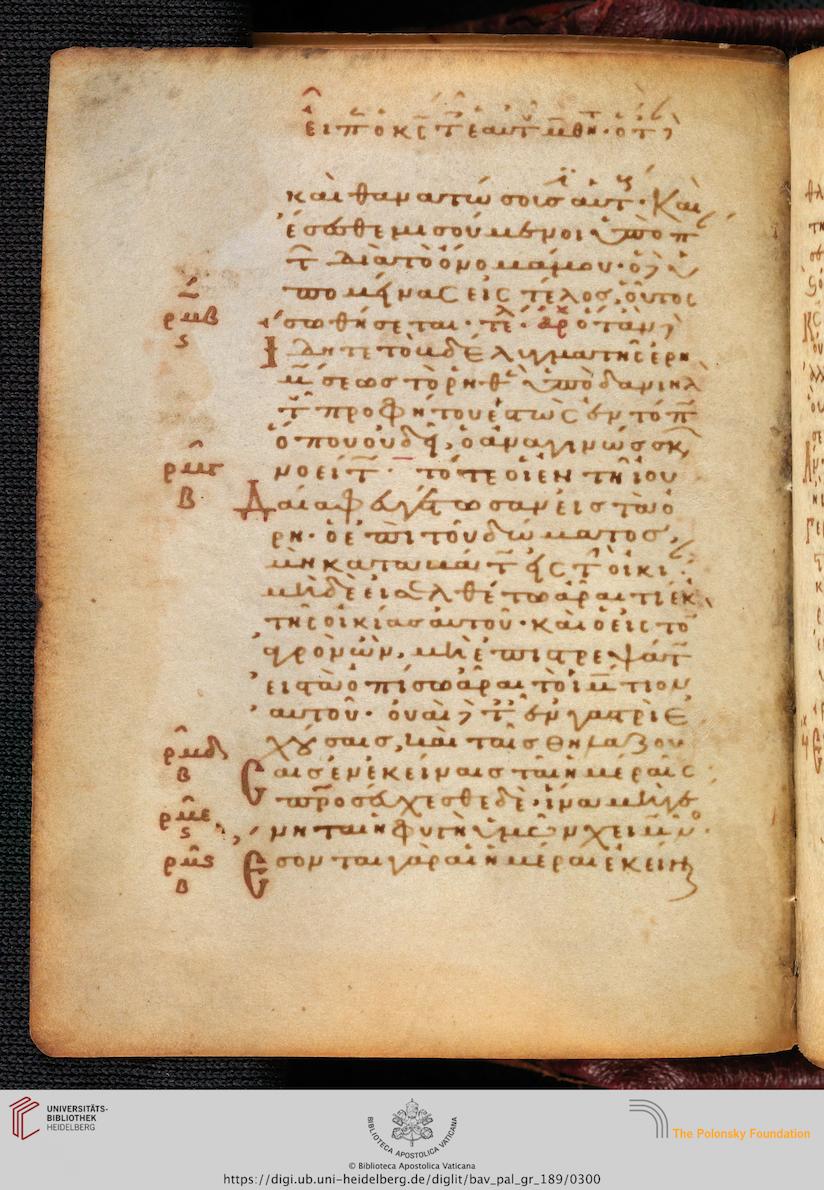 εἶπ ὁ κς τ ἑαυτ μθη· ὅτ
καὶ θανατώσουσιν αὐτ· Καὶ
ἔσεσθε μισούμενοι ὑπὸ π
τ διὰ τὸ ὄνομά μου· ὁ δ ὑ
πομείνας εἰς τέλος, οὗτος
σωθήσεται· τέλ· ἀρχ ὅταν
ρμβ
ς
Ἴδητε τὸ βδέλυγμα τῆς ἐρη
μώσεως τὸ ρηθ ὑπὸ δανιὴλ
τ προφήτου ἑστὼς ἐν τόπ
ὅπου οὐ δεῖ, ὁ ἀναγινώσκ
ρμγ
β
νοείτ· τότε οἱ ἐν τῇ ἰου
Δαία φευγέτωσαν εἰς τὰ ὄ
ρη· ὁ ἐπὶ τοῦ δώματος,
μὴ καταβάτ εἰς τ οἰκί
μηδὲ εἰσελθέτω ἆραι τι ἐκ
τῆς οἰκίας αὐτοῦ· καὶ ὁ εἰς τὸ
ἀγρὸν ὢν, μὴ ἐπιστρεψάτ
εἰς τὰ ὀπίσω ἆραι τὸ ἱμάτιον
αὐτοῦ· οὐαὶ δ τ ἐν γαστρὶ ἐ
ρμδ
β
χούσαις, καὶ ταῖς θηλαζού
σαις ἐν ἐκείναις ταῖς ἡμέραις
ρμε
ς
Προσεύχεσθε δὲ· ἵνα μὴ γέ
νηται ἡ φυγὴ ὑμῶν χειμῶν
ρμς
β
Ἔσονται γὰρ αἱ ἡμέραι ἐκεῖναι
UNIVERSITÄTS-
BIBLIOTHEK
HEIDELBERG
BIBLIOTECA APOSTOLICA VATICANA
The Polonsky Foundation
© Biblioteca Apostolica Vaticana
https://digi.ub.uni-heidelberg.de/diglit/bav_pal_gr_189/0300